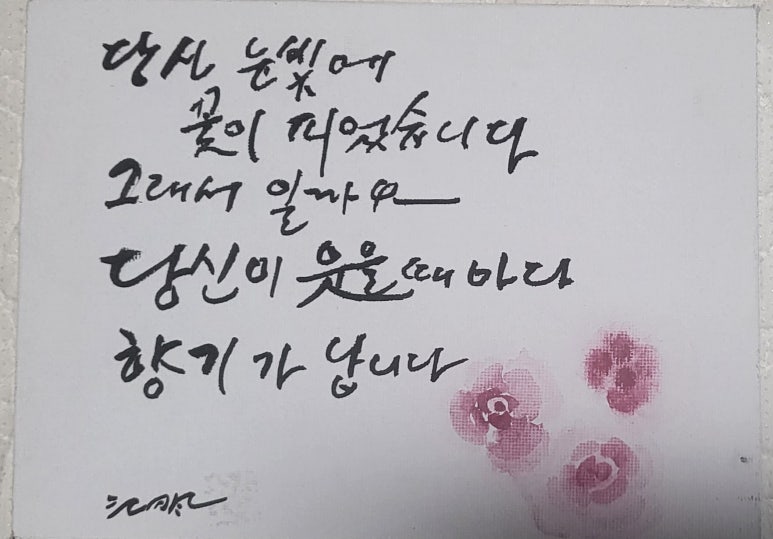 당신 눈빛에
꽃이 피었습니다
그래서 일까요
당신이 웃을때마다
향기가 납니다